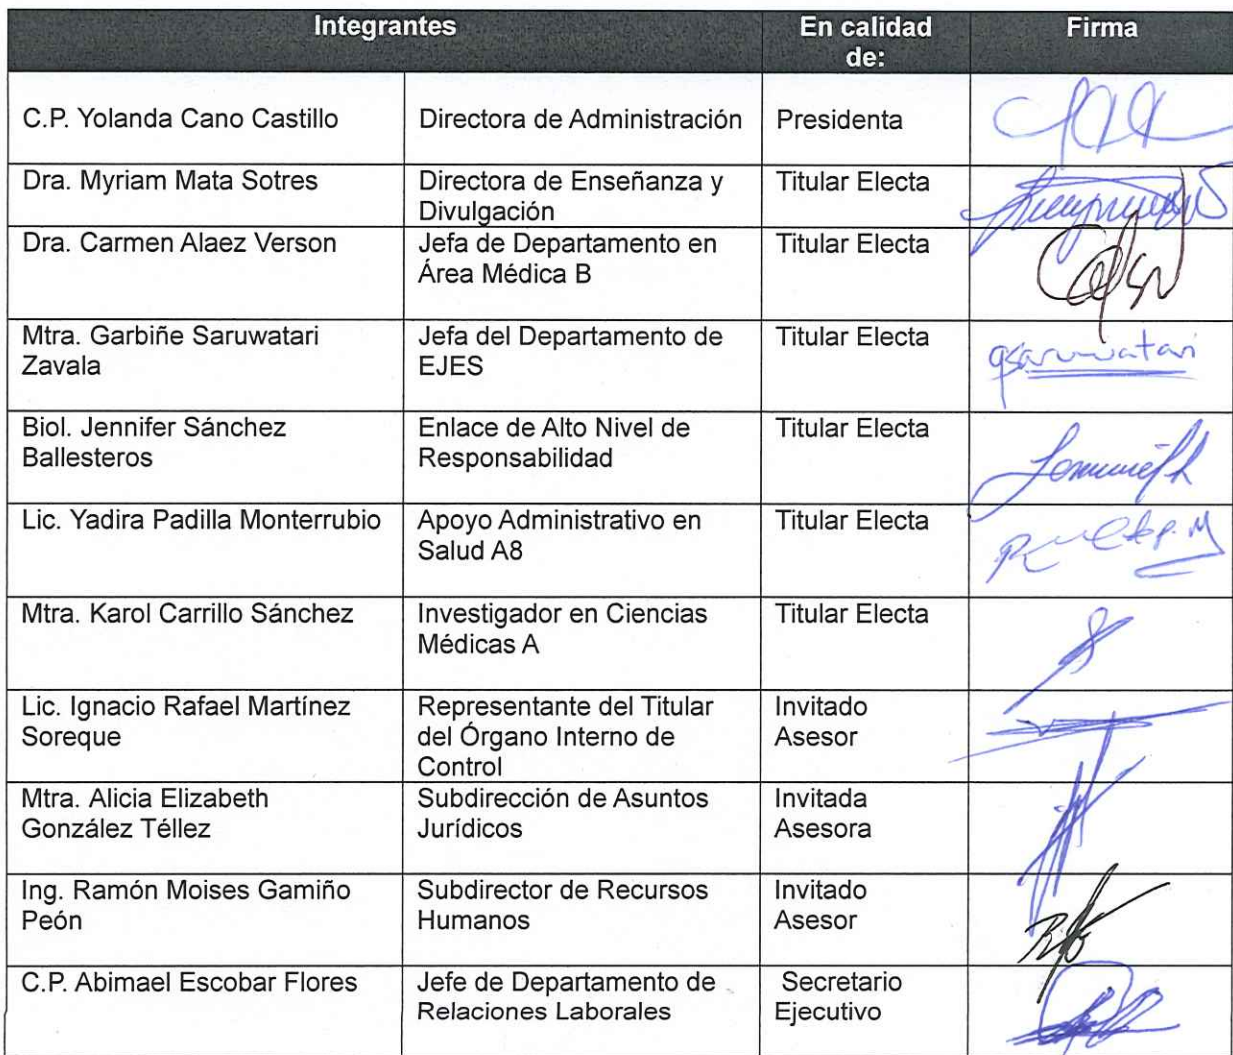 Integrantes
En calidad
de:
Firma
C.P. Yolanda Cano Castillo
Directora de Administración
Presidenta
Dra. Myriam Mata Sotres
Directora de Enseñanza y
Divulgación
Titular Electa
Dra. Carmen Alaez Verson
Jefa de Departamento en
Área Médica B
Titular Electa
Mtra. Garbiñe Saruwatari
Zavala
Jefa del Departamento de
EJES
Titular Electa
gsaruwatari
Biol. Jennifer Sánchez
Ballesteros
Enlace de Alto Nivel de
Responsabilidad
Titular Electa
Lic. Yadira Padilla Monterrubio
Apoyo Administrativo en
Salud A8
Titular Electa
Mtra. Karol Carrillo Sánchez
Investigador en Ciencias
Médicas A
Titular Electa
Lic. Ignacio Rafael Martínez
Soreque
Representante del Titular
del Órgano Interno de
Control
Invitado
Asesor
Mtra. Alicia Elizabeth
González Téllez
Subdirección de Asuntos
Jurídicos
Invitada
Asesora
Ing. Ramón Moises Gamiño
Peón
Subdirector de Recursos
Humanos
Invitado
Asesor
C.P. Abimael Escobar Flores
Jefe de Departamento de
Relaciones Laborales
Secretario
Ejecutivo